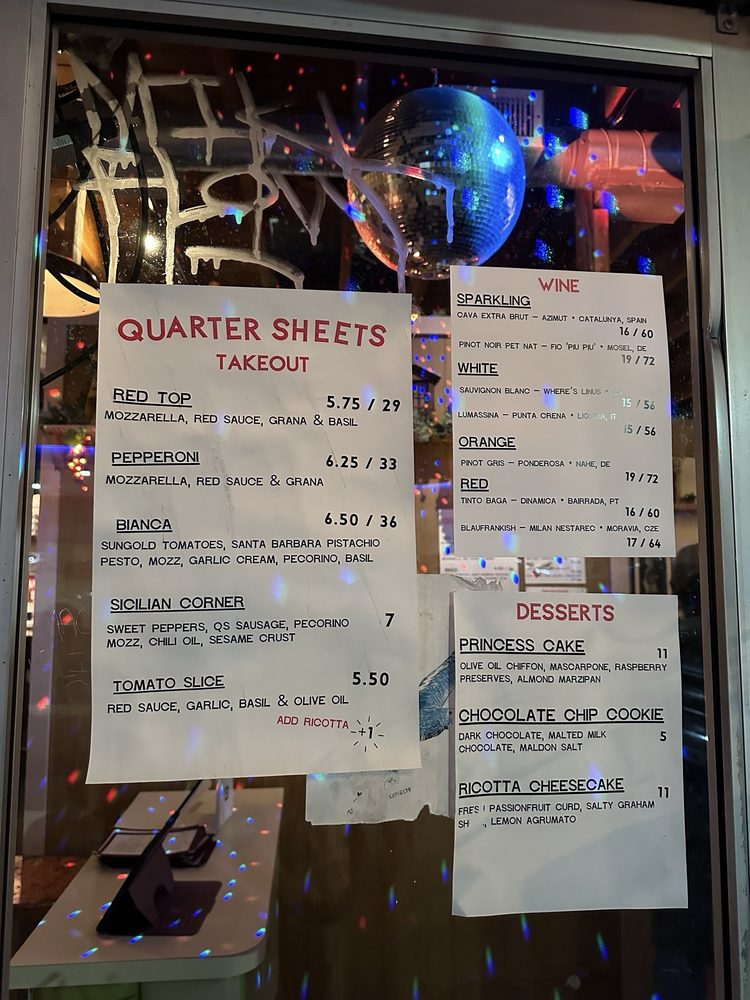 QUARTER SHEETS
TAKEOUT
RED TOP 5.75 / 29
MOZZARELLA, RED SAUCE, GRANA & BASIL
PEPPERONI 6.25 / 33
MOZZARELLA, RED SAUCE & GRANA
BIANCA 6.50 / 36
SUNGOLD TOMATOES, SANTA BARBARA PISTACHIO
PESTO, MOZZ, GARLIC CREAM, PECORINO, BASIL
SICILIAN CORNER
SWEET PEPPERS, QS SAUSAGE, PECORINO 7
MOZZ, CHILI OIL, SESAME CRUST
TOMATO SLICE 5.50
RED SAUCE, GARLIC, BASIL & OLIVE OIL
ADD RICOTTA +1
WINE
SPARKLING
CAVA EXTRA BRUT – AZIMUT • CATALUNYA, SPAIN
16 / 60
PINOT NOIR PET NAT – FIO 'PIU PIU' • MOSEL, DE
19 / 72
WHITE
SAUVIGNON BLANC – WHERE'S LINUS •
15 / 56
LUMASSINA – PUNTA CRENA • LIGURIA, IT
15 / 56
ORANGE
PINOT GRIS – PONDEROSA • NAHE, DE
19 / 72
RED
TINTO BAGA – DINAMICA • BAIRRADA, PT
16 / 60
BLAUFRANKISH – MILAN NESTAREC • MORAVIA, CZE
17 / 64
DESSERTS
PRINCESS CAKE 11
OLIVE OIL CHIFFON, MASCARPONE, RASPBERRY
PRESERVES, ALMOND MARZIPAN
CHOCOLATE CHIP COOKIE
DARK CHOCOLATE, MALTED MILK 5
CHOCOLATE, MALDON SALT
RICOTTA CHEESECAKE 11
PASSIONFRUIT CURD, SALTY GRAHAM
LEMON AGRUMATO